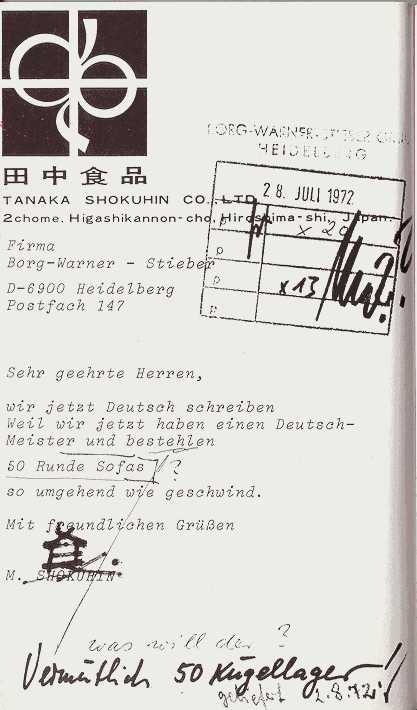 田中食品
TANAKA SHOKUHIN CO.,LTD.
2chome, Higashikannon-cho, Hiroshima-shi, Japan.
BORG-WARNER-STIEBER GMBH
HEIDELBERG
28. JULI 1972
x 20
x 13
Firma
Borg-Warner - Stieber
D-6900 Heidelberg
Postfach 147
Sehr geehrte Herren,
wir jetzt Deutsch schreiben
Weil wir jetzt haben einen Deutsch-
Meister und bestehlen
50 Runde Sofas ?
so umgehend wie geschwind.
Mit freundlichen Grüßen
M. SHOKUHIN
was will der ?
Vermutlich 50 Kugellager!
geliefert 2.8.72